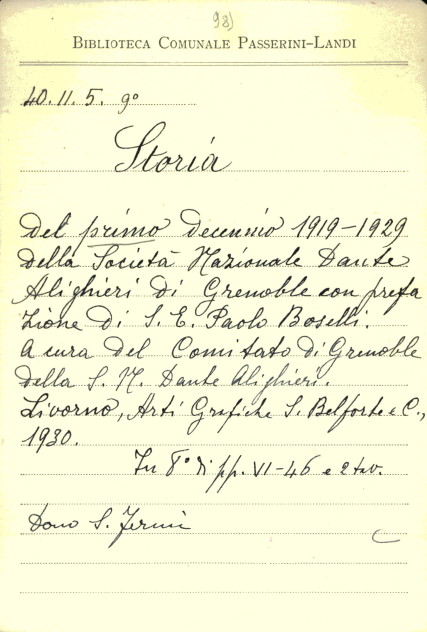 98)
BIBLIOTECA COMUNALE PASSERINI-LANDI
40.II.5. 9°
Storia
del primo decennio 1919-1929
della Società Nazionale Dante
Alighieri di Grenoble con prefa
zione di S. E. Paolo Boselli.
A cura del Comitato di Grenoble
della S. N. Dante Alighieri.
Livorno, Arti Grafiche S. Belforte e C.,
1930.
In 8° di pp. VI-46 e 2 tav.
Dono S. Fermi